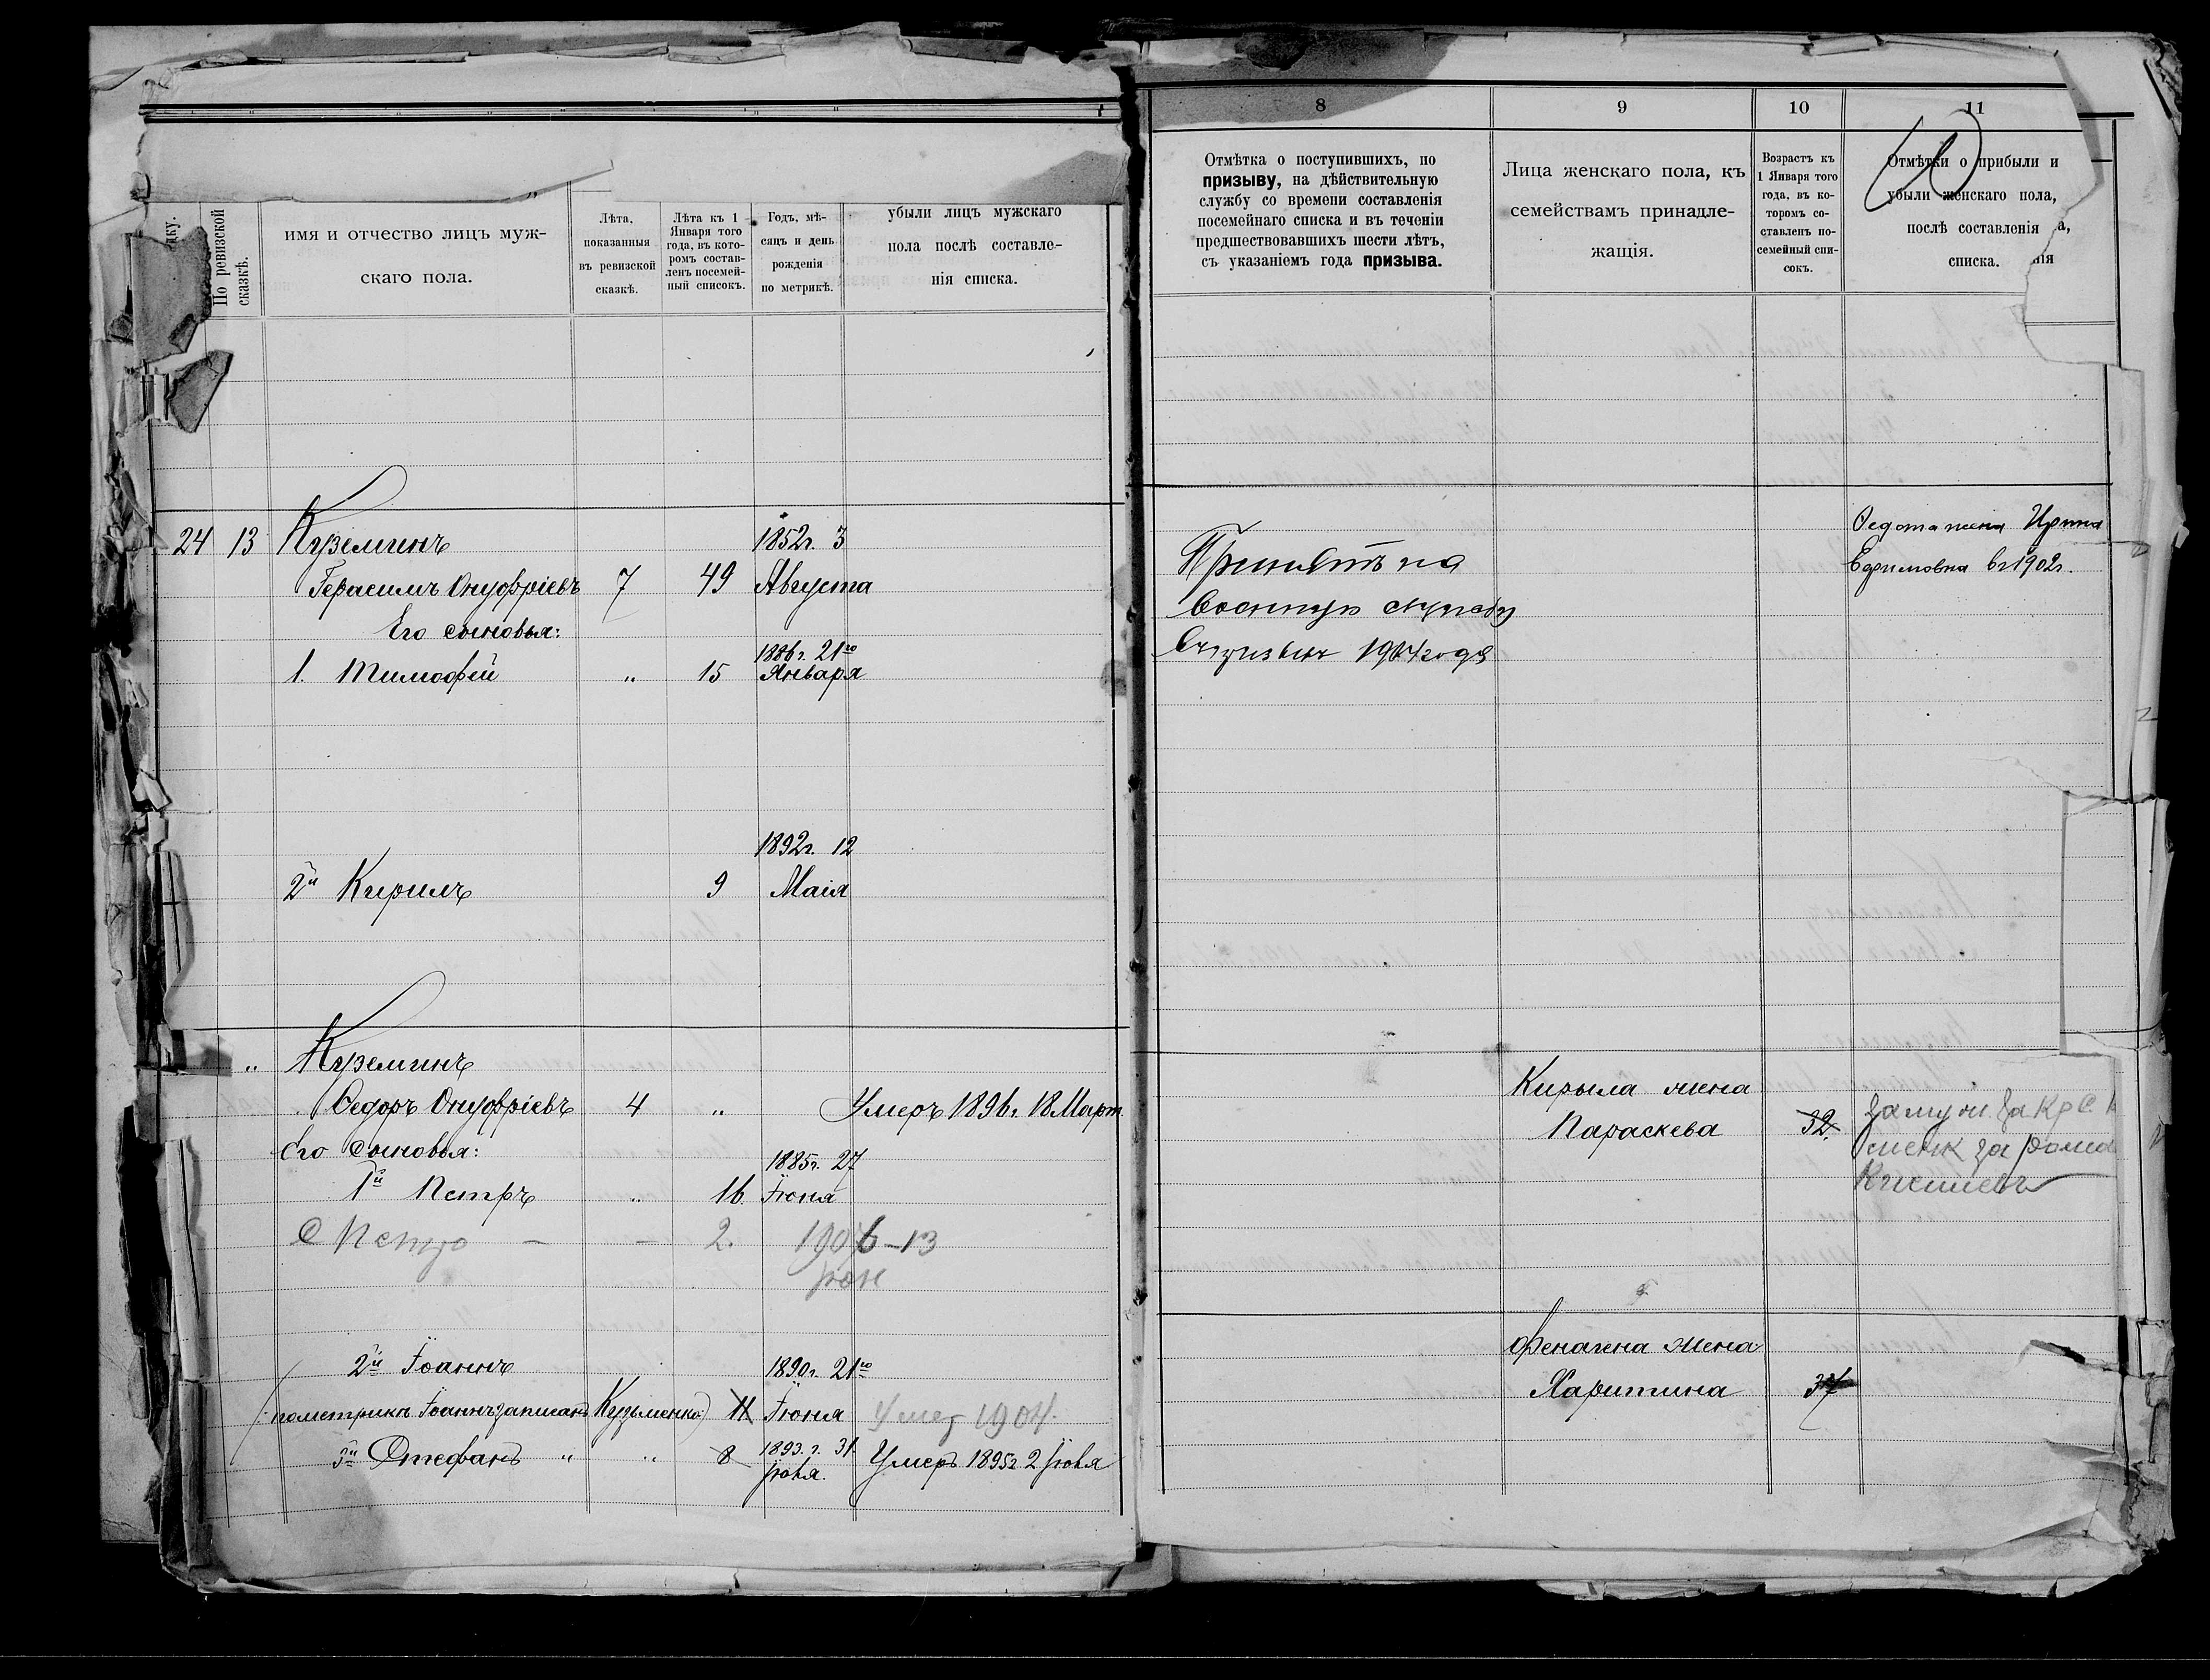 По ревизской
сказкѣ.
имя и отчество лицъ муж-
скаго пола.
Лѣта,
показанныя
въ ревизской
сказкѣ.
Лѣта къ 1
Января того
года, въ кото-
ромъ состав-
ленъ посемей-
ный списокъ.
Годъ, мѣ-
сяцъ и день
рожденія
по метрикѣ.
убыли лицъ мужскаго
пола послѣ составле-
нія списка.
24 13 Куземинъ 1852г. 3
Герасимъ Онуфріевъ 7 49 Августа
Его сыновья:
1886г. 21го
1. Тимофей " 15 Января
1892г. 12
2й Кирилъ 9 Маія
" Куземинъ
Ѳедоръ Онуфріевъ 4 " Умеръ 1896г. 18 Март
Его сыновья: 1885г. 27
1й Петръ " 16 Іюня
С Петро — — 2. 1906–13
2й Іоаннъ 1890г. 21го
(пометрикѣ Іоаннъ записанъ Кузьменко) 11 Іюня Умер 1904.
1893.г. 31
3й Стефанъ " " 8 Іюля. Умеръ 1895г 2 Іюля
8
9
10
11
Отмѣтка о поступившихъ, по
призыву, на дѣйствительную
службу со времени составленія
посемейнаго списка и въ теченіи
предшествовавшихъ шести лѣтъ,
съ указаніемъ года призыва.
Лица женскаго пола, къ
семействамъ принадле-
жащія.
Возрастъ къ
1 Января того
года, въ ко-
торомъ со-
ставленъ по-
семейный спи-
сокъ.
Отмѣтки о прибыли и
убыли женскаго пола,
послѣ составленія
списка.
Ѳедота жена Ирина
Ефимовна въ 1902г.
Принятъ на
военную службу
1904 года
Кирыла жена
Параскева 32.
замуж. за
за
Харитина 37
жена